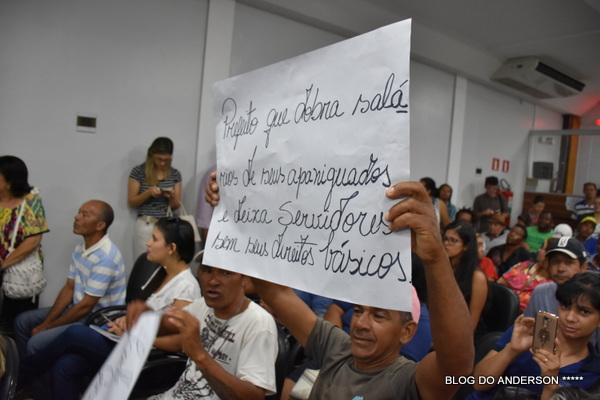 Prefeito que dobra salá
rios de seus apaniguados
e deixa Servidores
sem seus direitos básicos.
BLOG DO ANDERSON *****